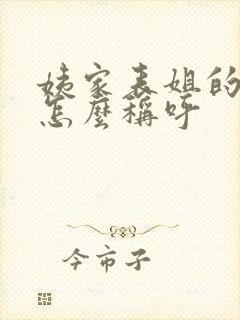 姨家表姐的
怎麼稱呼
今市子